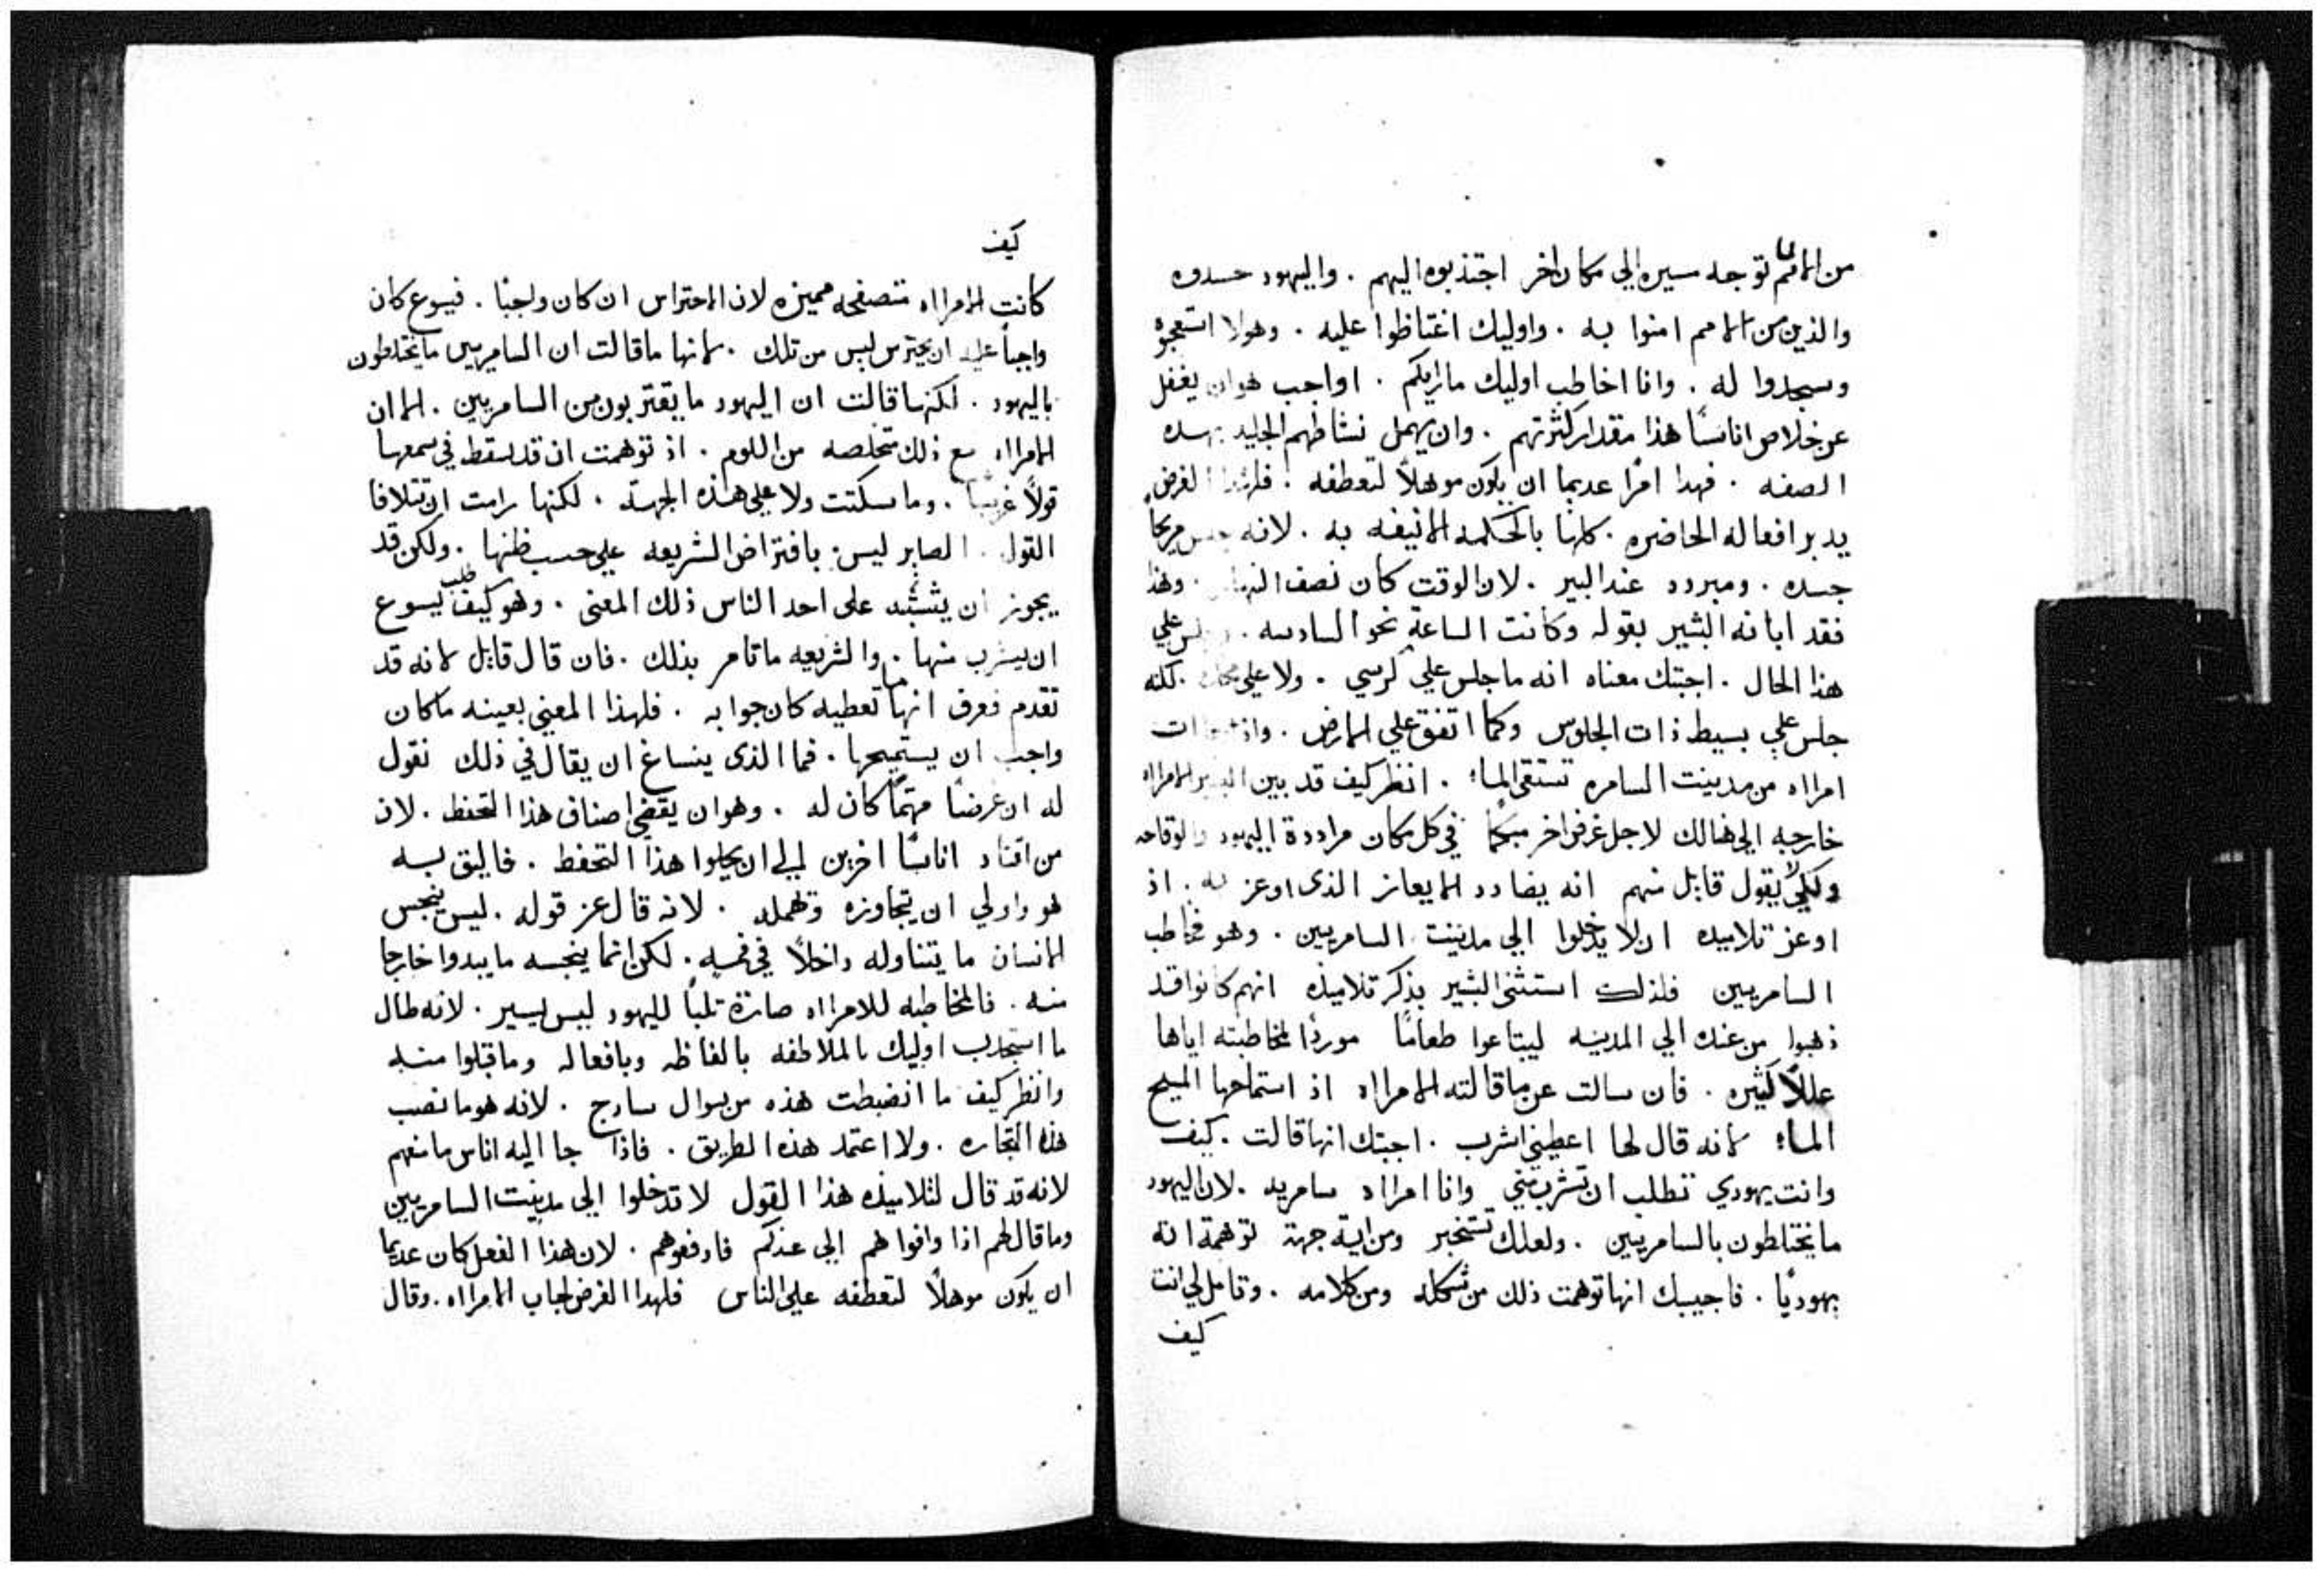 من الامم لما توجه سيره الي مكان اخر اجتذبوه اليهم . واليهود حسدوه
والذين من الامم امنوا به . واوليك اغتاظوا عليه . وهولا استعجبوه
وسجدوا له . وانا اخاطب اوليك ما رايكم . اواجب هو ان يغفل
عن خلاص اناسًا هذا مقدار كثرتهم . وان يهمل نشاطهم الجليد بهده
الصفه . فهدا امرًا عديما ان يكون موهلًا لتعطفه . فلهذا الغرض
يدبر افعاله الحاضره . كلها بالحكمه الانيفه به . لانه جلس مريحًا
جسده . ومبردد عند البير . لان الوقت كان نصف النهار . وهذا
فقد ابانه البشير بقوله وكانت الساعة نحو السادسه . وجلس علي
هذا الحال . اجبتك معناه انه ما جلس علي كرسي . ولا علي لكنه
جلس علي بسيط ذات الجلوس وكما اتفق علي الارض . واذ ات
امراه من مدينت السامره تستقي الماء . انظر كيف قد بين البشير الامراه
خارجه الي هنالك لاجل غرض اخر مبكمًا في كل مكان مراددة اليهود والوقاحه
ولكي لا يقول قايل منهم انه يضادد الايعاز الذى اوعز به . اذ
اوعز تلاميده ان لا يدخلوا الي مدينت السامريين . وهو فخاطب
السامريين فلذلك استثنى البشير بذكر تلاميذه انهم كانوا قد
ذهبوا من عنده الي المدينه ليبتاعوا طعامًا موردًا لمخاطبته اياها
عللًا كثيره . فان سالت عن ما قالته الامراه اذ استماحها المسيح
الماء لانه قال لها اعطيني اشرب . اجبتك انها قالت . كيف
وانت يهودي تطلب ان تشرب مني وانا امراه سامريه . لان اليهود
ما يختلطون بالسامريين . ولعلك تستخبر ومن اية جهة توهمة انه
يهوديًا . فاجيبك انها توهمت ذلك من شكله ومن كلامه . وتامل لي انت
كيف
كيف
كانت الامراه متصفحه مميزه لان الاحتراس ان كان واجبًا . فيسوع كان
واجبًا عليه ان يحترس ليس من تلك . لانها ما قالت ان السامريين ما يختلطون
باليهود . لكنها قالت ان اليهود ما يقتربون من السامريين . الا ان
الامراه مع ذلك متخلصه من اللوم . اذ توهمت ان قد سقط في سمعها
قولًا غريبًا . وما سكتت ولا علي هذه الجهة . لكنها رامت ان تتلافا
القول . الصابر ليس بافتراض الشريعه علي حسب ظنها . ولكن قد
يجوز ان يشتبه على احد الناس ذلك المعنى . وهو كيف طلب يسوع
ان يشرب منها . والشريعه ما تامر بذلك . فان قال قايل لانه قد
تقدم فعرف انها ما تعطيه كان جوابه . فلهذا المعني بعينه ما كان
واجب ان يستميحها . فما الذى ينساغ ان يقال في ذلك نقول
له ان غرضًا مهتمًا كان له . وهو ان يقضي اصناف هذا التحفظ . لان
من اقتاد اناسًا اخرين الي ان يحلوا هذا التحفظ . فاليق به
هو واولي ان يتجاوزه وتهمله . لانه قال عز قوله . ليس ينجس
الانسان ما يتناوله داخلًا في فمه . لكن انما ينجسه ما يبدوا خارجا
منه . فالمخاطبه للامراه صارة ثلبًا لليهود ليس يسير . لانه طال
ما استجدب اوليك بالملاطفه بالفاظه وبافعاله وما قبلوا منه
وانظر كيف ما انضبطت هذه من سوال سادج . لانه هو ما نصب
هذه التجاره . ولا اعتمد هذه الطريق . فاذا جا اليه اناس ما منعهم
لانه قد قال لتلاميذه هذا القول لا تدخلوا الي مدينت السامريين
وما قال لهم اذا وافوا هم الي عندكم فادفعوهم . لان هذا الفعل كان عديما
ان يكون موهلًا لتعطفه علي الناس فلهدا الغرض اجاب الامراه . وقال